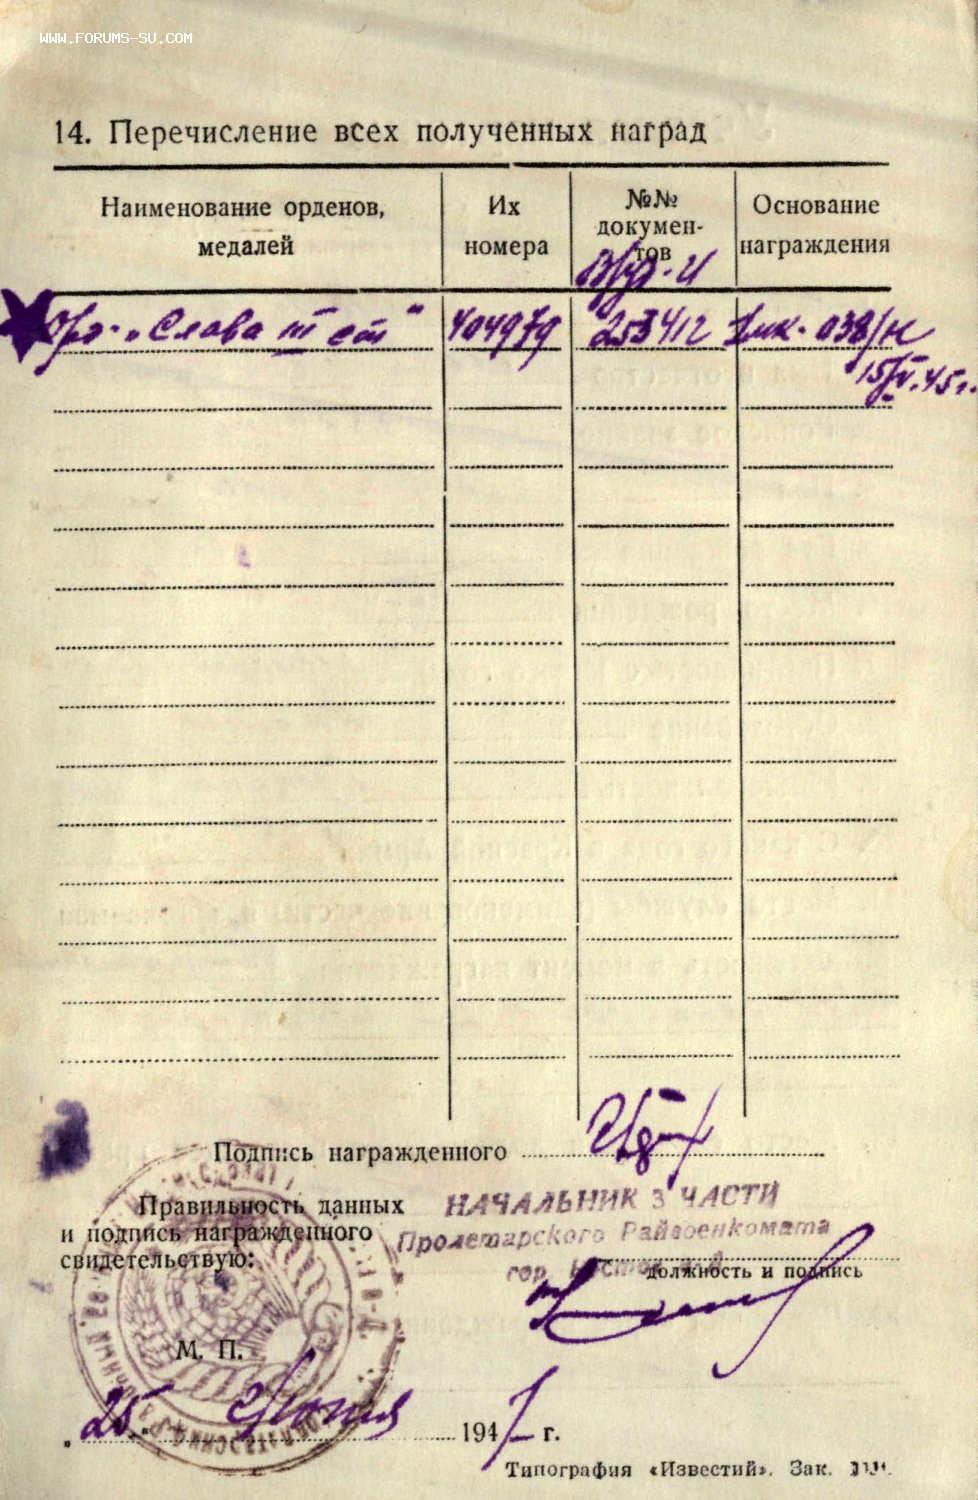 WWW.FORUMS-SU.COM
14. Перечисление всех полученных наград
Наименование орденов,
медалей
Их
номера
№№
докумен-
тов
Основание
награждения
Орд. „Слава III ст"
404979
253412
038/н
15/V.45г.
Подпись награжденного
Правильность данных
и подпись награжденного
свидетельствую:
НАЧАЛЬНИК 3 ЧАСТИ
Пролетарского Райвоенкомата
гор.
должность и подпись
М. П.
„25" Июня 1947 г.
Типография «Известий». Зак.